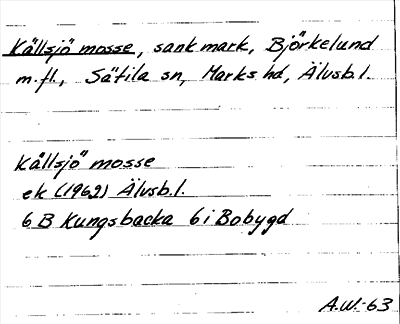 Källsjö mosse, sank mark, Björkelund
m.fl., Sätila sn, Marks hd, Älvsb.l.
Källsjö mosse
ek (1962) Älvsb.l.
6 B Kungsbacka 6 i Bobygd
A.W.-63